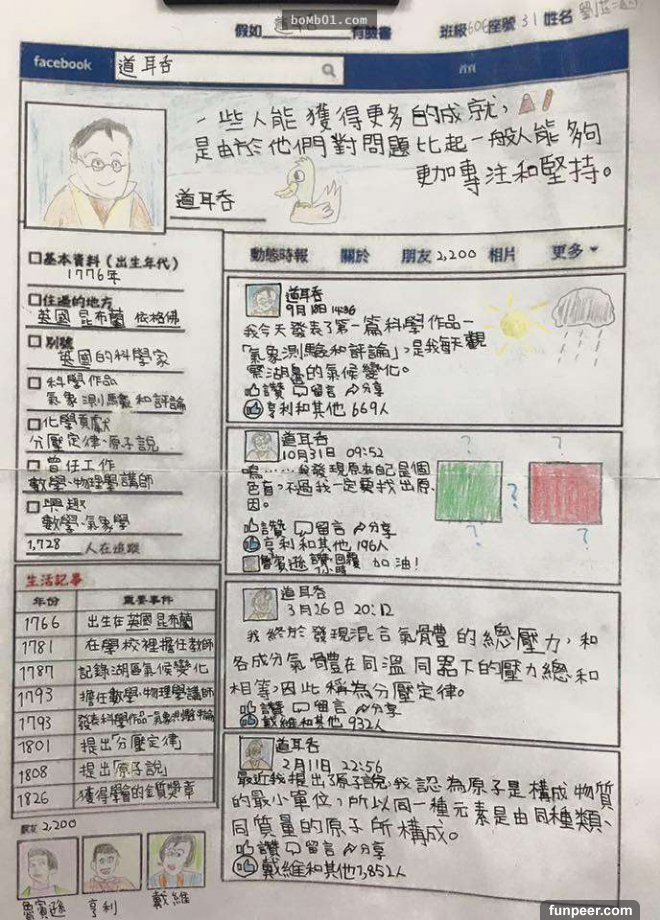 boMb01.com
假如 道耳吞 有臉書 班級606座號31姓名
facebook
道耳吞
首頁
一些人能獲得更多的成就，
是由於他們對問題比起一般人能夠
更加專注和堅持。
道耳吞
動態時報 關於 朋友2,200 相片 更多
基本資料（出生年代）
1776年
住過的地方
英國 昆布蘭 依格佛
別號
英國的科學家
科學作品
氣象測驗和評論
化學貢獻
分壓定律、原子說
曾任工作
數學、物理學講師
興趣
數學、氣象學
1,728 人在追蹤
生活記事
年份 重要事件
1766 出生在英國昆布蘭
1781 在學校裡擔任教師
1787 記錄湖區氣候變化
1793 擔任數學、物理學講師
1793 發表科學作品-氣象測驗和評論
1801 提出「分壓定律」
1808 提出「原子說」
1826 獲得學會的金質獎章
朋友 2,200
魯賓遜 亨利 戴維
道耳吞
9月18日 14:36
我今天發表了第一篇科學作品-
「氣象測驗和評論」，是我每天觀
察湖邊的氣候變化。
讚 留言 分享
亨利和其他669人
道耳吞
10月31日 09:52
嗚……我發現原來自己是個
色盲，不過我一定要找出原
因。
? ? ? ? ?
讚 留言 分享
亨利和其他196人
魯賓遜 讚·回覆 加油！
道耳吞
3月26日 20:12
我終於發現混合氣體的總壓力，和
各成分氣體在同溫同器下的壓力總和
相等，因此稱為分壓定律。
讚 留言 分享
戴維和其他932人
道耳吞
2月11日 22:56
最近我提出了原子說，我認為原子是構成物質
的最小單位，所以同一種元素是由同種類、
同質量的原子所構成。
讚 留言 分享
戴維和其他1,852人
funpeer.com